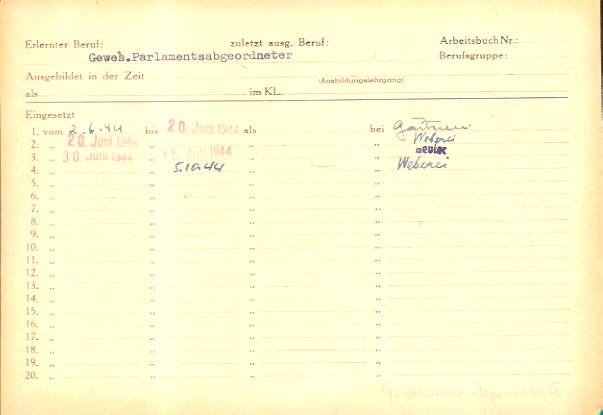 Erlernter Beruf: zuletzt ausg. Beruf: Arbeitsbuch Nr.:
Gewes.Parlamentsabgeordneter Berufsgruppe:
Ausgebildet in der Zeit (Ausbildungslehrgang)
als im KL.
Eingesetzt
1. vom 2.6.44 bis 20. Juni 1944 als bei Gärtnerei
2. „ 20. Juni 1944 „ „ „ Weberei
3. „ 30. Juni 1944 „ Juli 1944 „ „
4. „ „ 5.10.44 „ „ Weberei
5. „ „ „ „
6. „ „ „ „
7. „ „ „ „
8. „ „ „ „
9. „ „ „ „
10. „ „ „ „
11. „ „ „ „
12. „ „ „ „
13. „ „ „ „
14. „ „ „ „
15. „ „ „ „
16. „ „ „ „
17. „ „ „ „
18. „ „ „ „
19. „ „ „ „
20. „ „ „ „
Abgeordneter